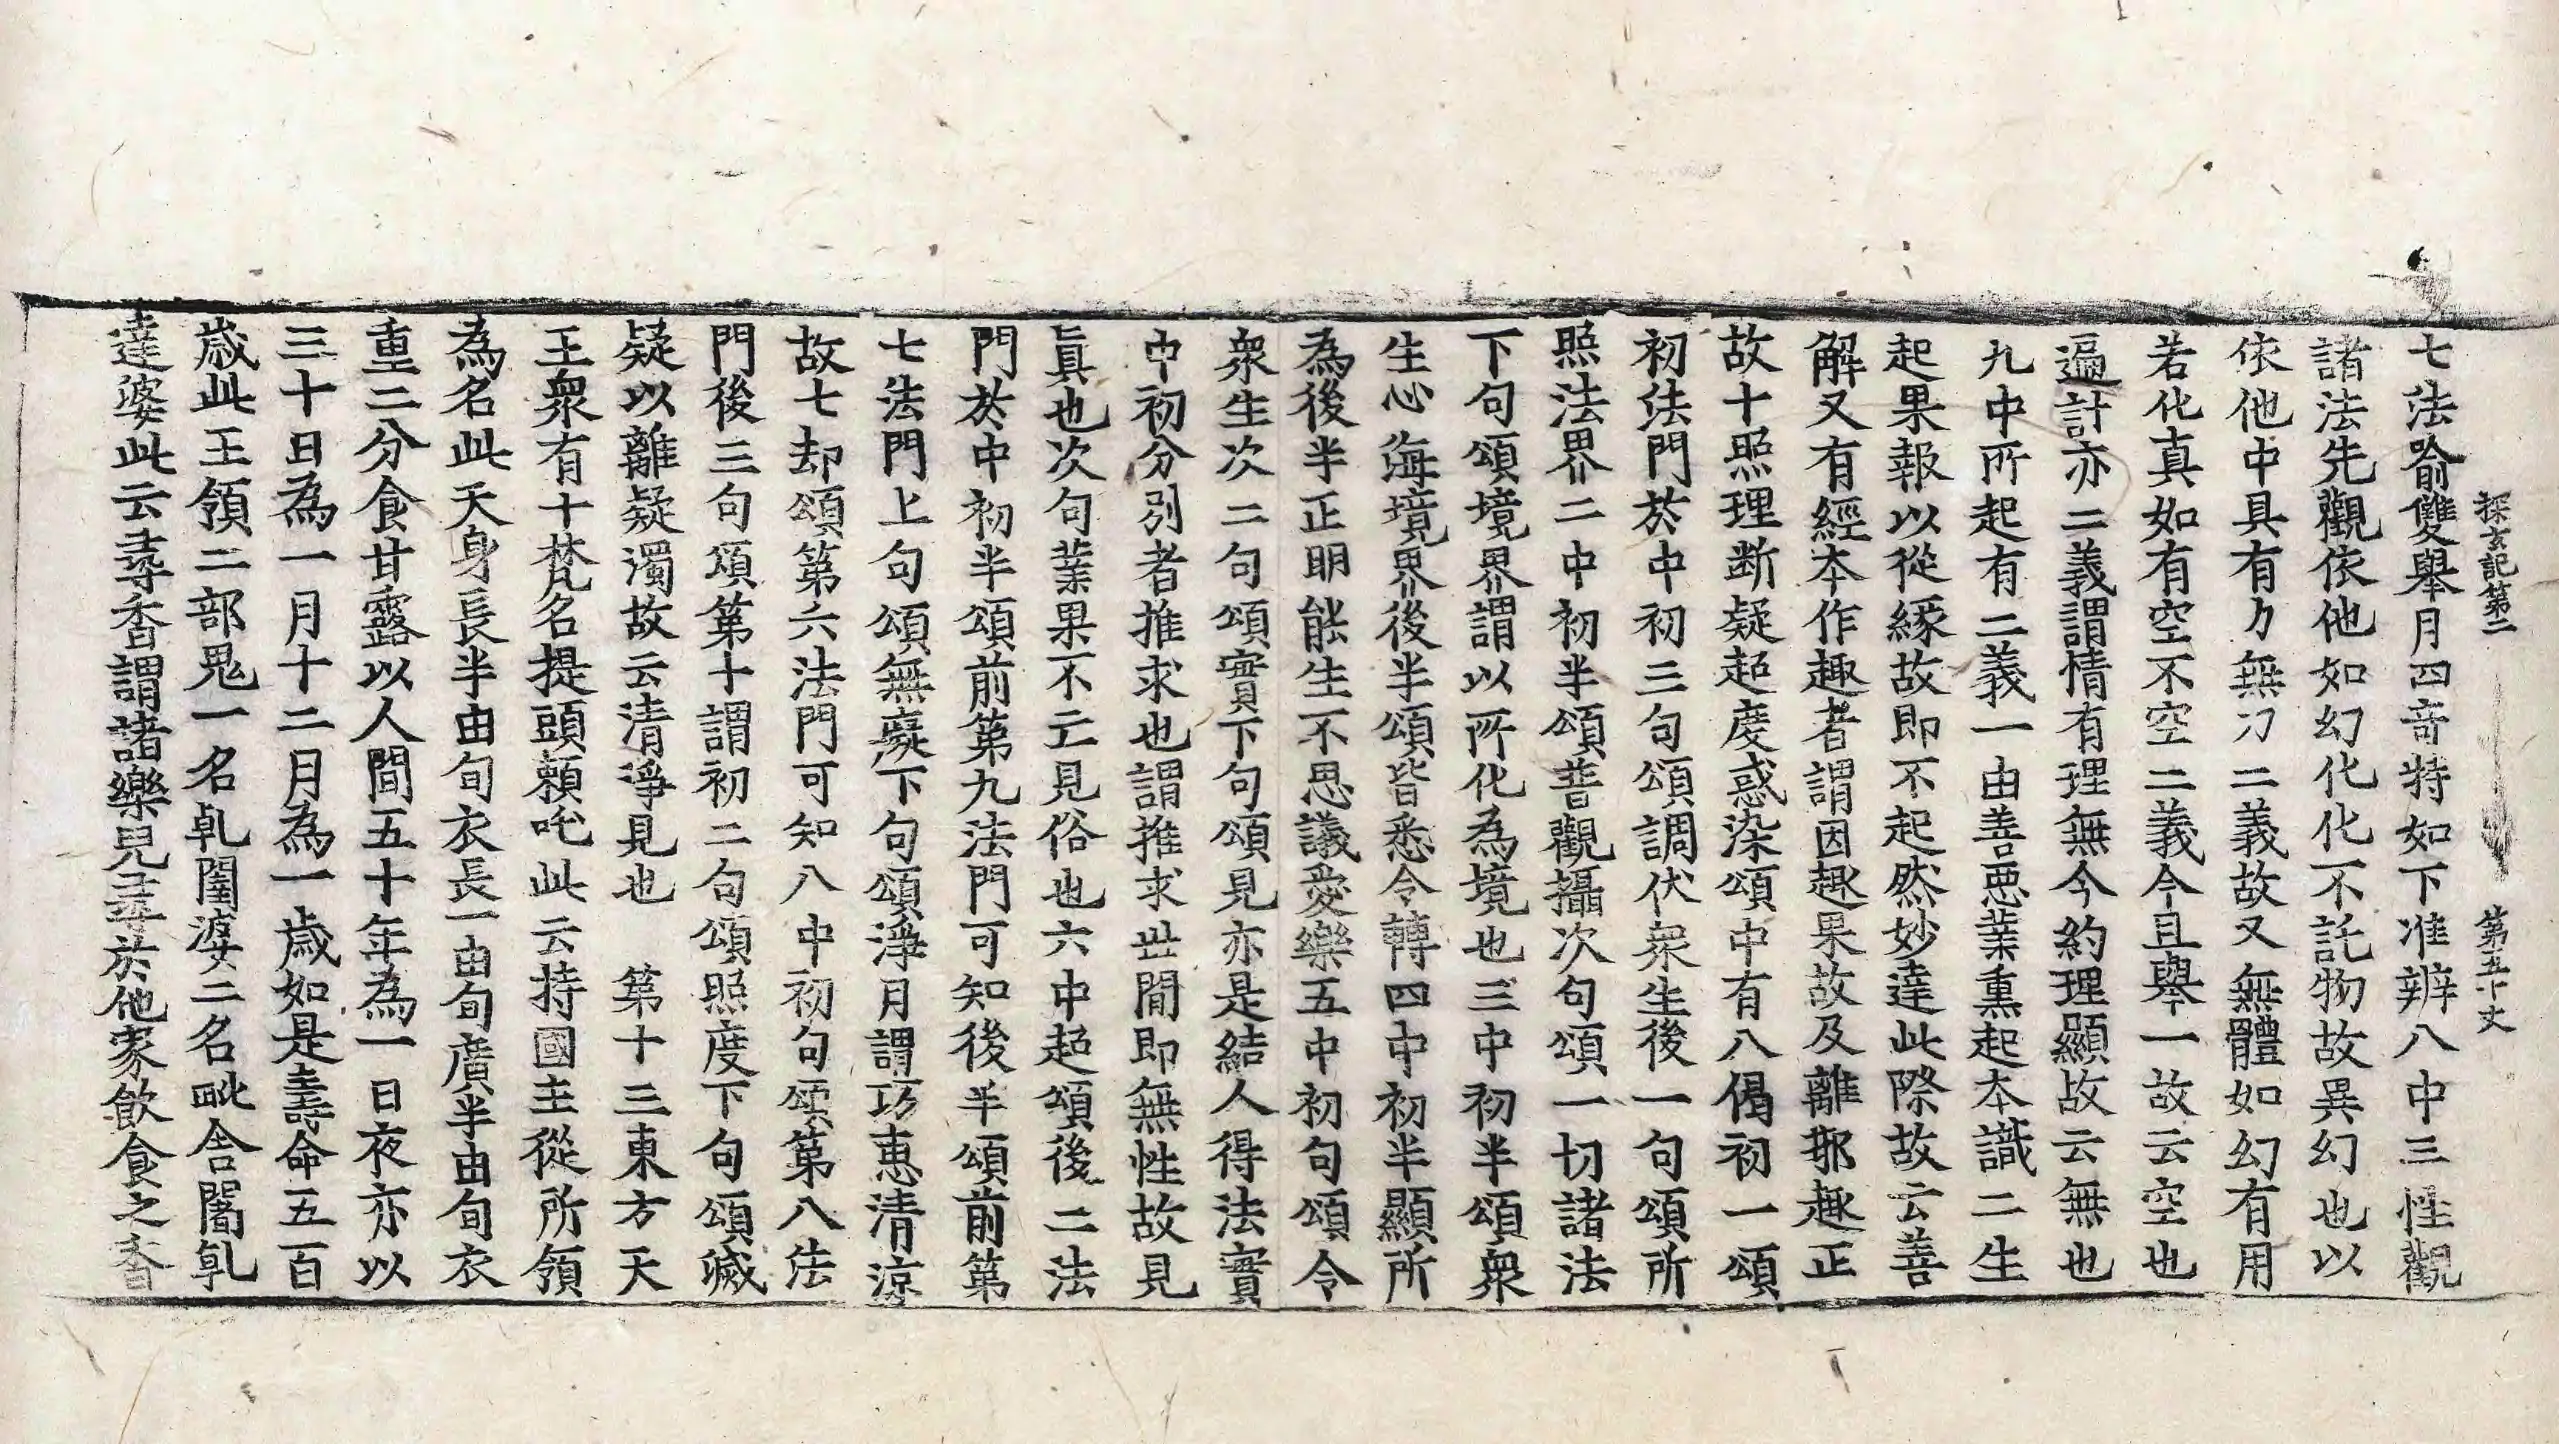 探玄記第二　第五十丈
七法喻雙舉月四奇特如下准辨八中三性觀
諸法先觀依他如幻化化不託物故異幻也以
依他中具有力無力二義故又無體如幻有用
若化真如有空不空二義今且舉一故云空也
遍計亦二義謂情有理無今約理顯故云無也
九中所起有二義一由善惡業熏起本識二生
起果報以從緣故即不起然妙達此際故云善
解又有經本作趣者謂因趣果故及離邪趣正
故十照理断疑超度惑染頌中有八偈初一頌
初法門於中初三句頌調伏衆生後一句頌所
照法界二中初半頌普觀攝次句頌一切諸法
下句頌境界謂以所化為境也三中初半頌衆
生心海境界後半頌皆悉令轉四中初半顯所
為後半正明能生不思議愛樂五中初句頌令
衆生次二句頌實下句頌見亦是結人得法實
中初分別者推求也謂推求世間即無性故見
真也次句業果不亡見俗也六中超頌後二法
門於中初半頌前第九法門可知後半頌前第
七法門上句頌無癡下句頌淨月謂巧惠清涼
故七却頌第六法門可知八中初句頌第八法
門後三句頌第十謂初二句頌照度下句頌滅
疑以離疑濁故云清淨見也　第十三東方天
王衆有十梵名提頭賴吒此云持國主從所領
為名此天身長半由旬衣長一由旬廣半由旬衣
重二分食甘露以人間五十年為一日夜亦以
三十日為一月十二月為一歲如是壽命五百
歲此王領二部鬼一名乹闥婆二名毗舍闍乹
達婆此云尋香謂諸樂兒尋於他家飲食之香